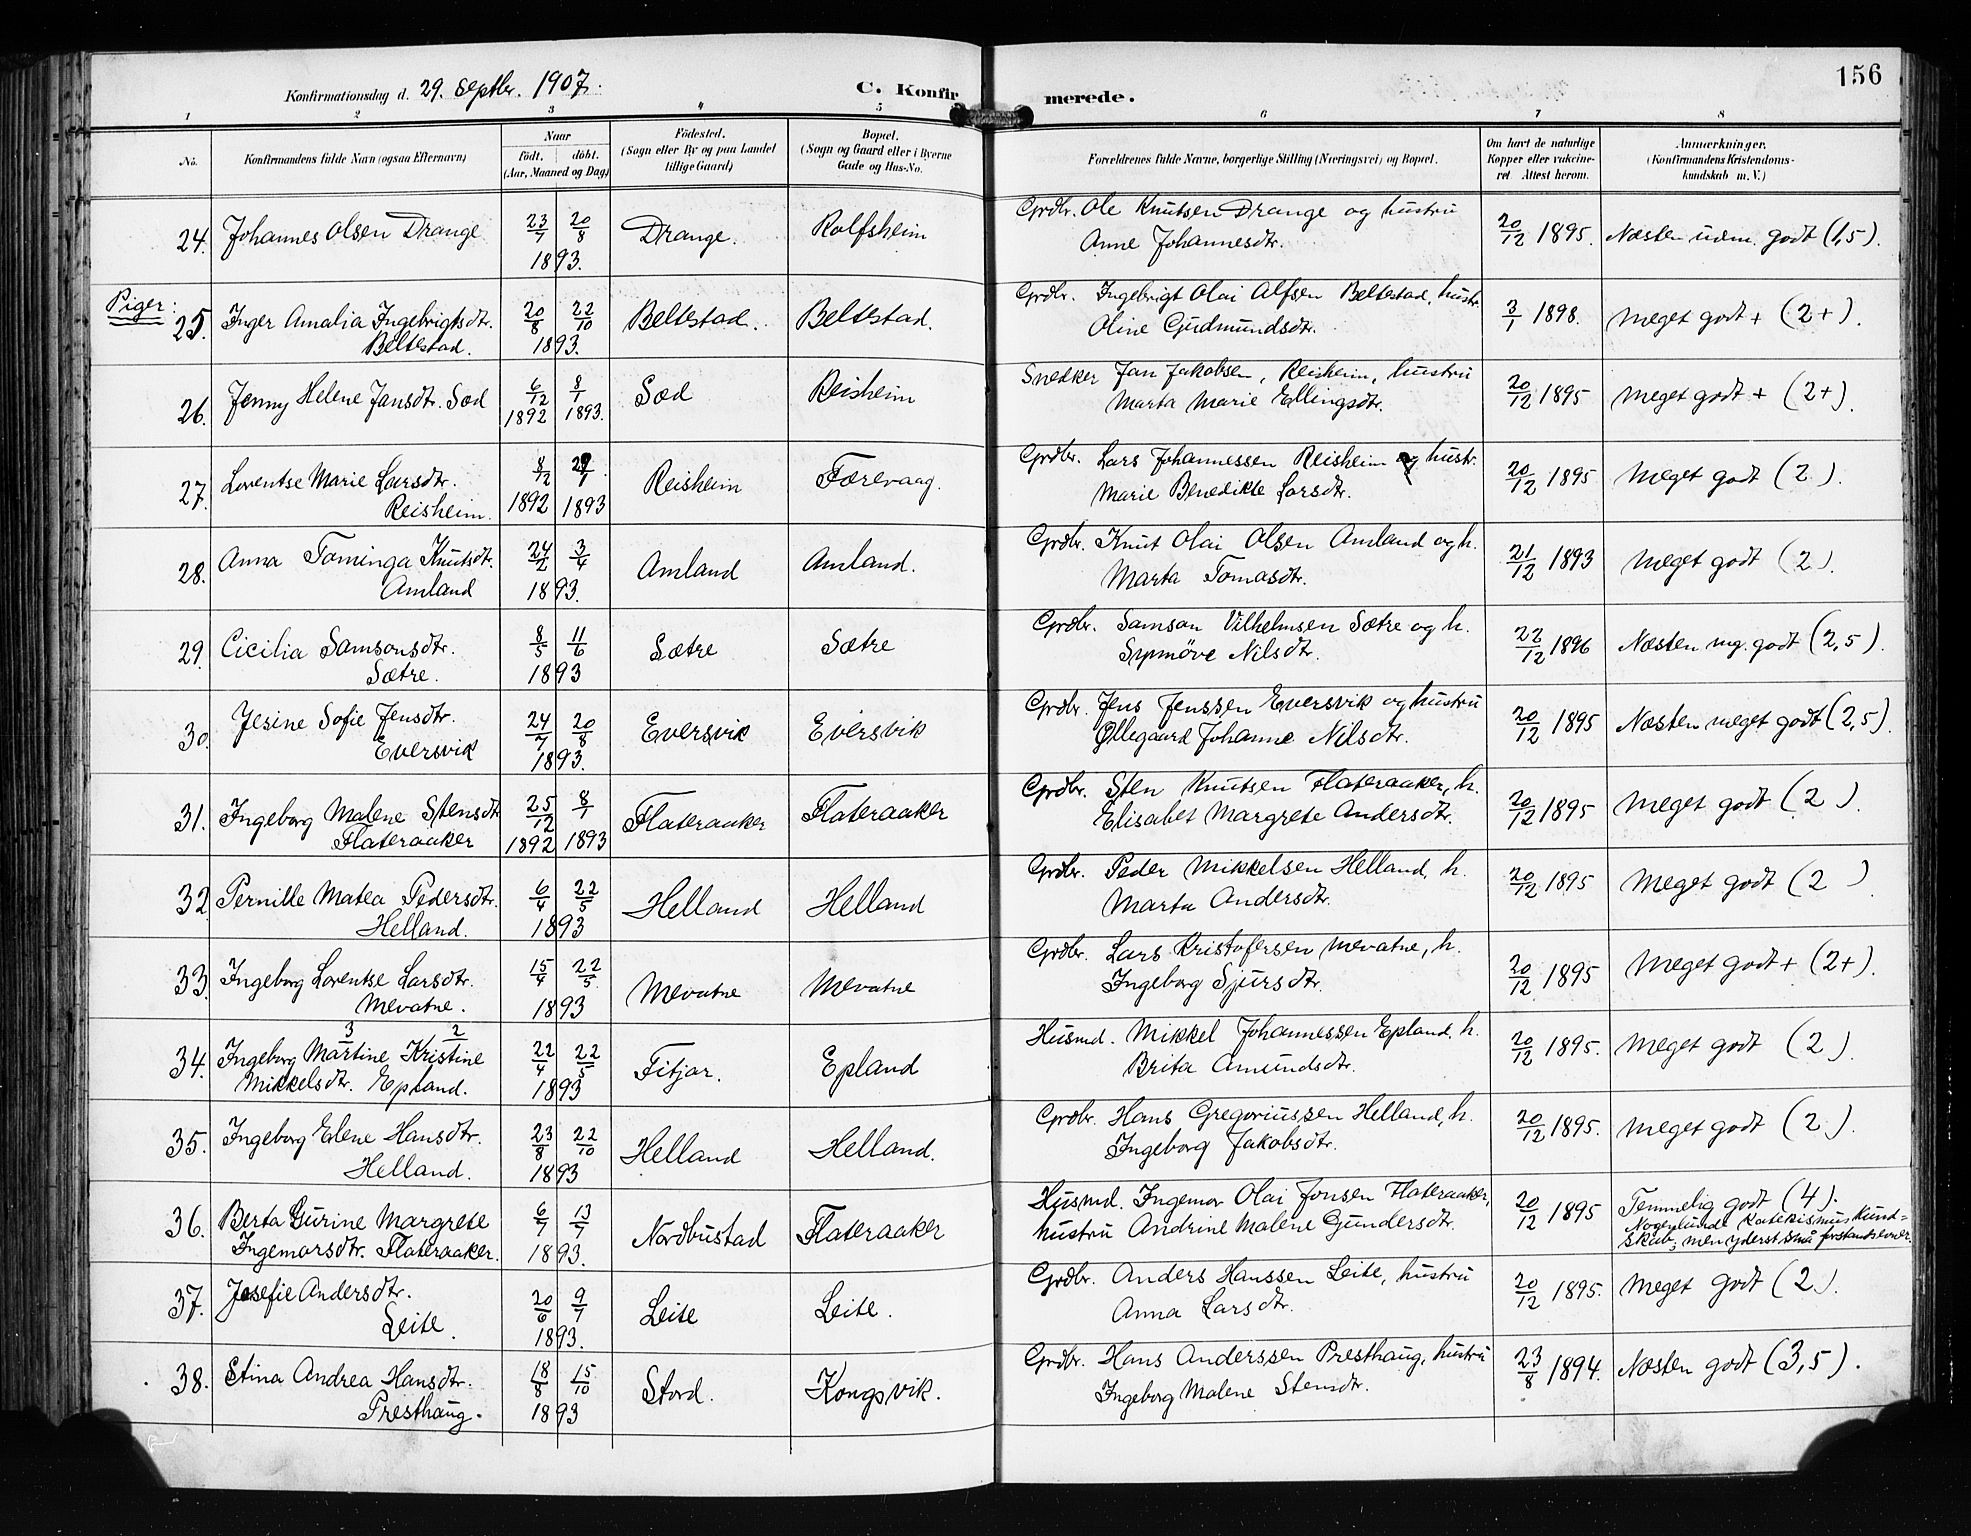 156
Konfirmationsdag d. 29. Septbr. 1907.
C. Konfirmerede.
1 2 3 4 5 6 7 8
No.
Konfirmandens fulde Navn (ogsaa Efternavn)
Naar
født. døbt.
(Aar, Maaned og Dag)
Födested.
(Sogn eller By og paa Landet
tillige Gaard)
Bopæl.
(Sogn og Gaard eller i Byerne
Gade og Hus-No.
Forældrenes fulde Navne, borgerlige Stilling (Næringsvei) og Bopæl.
Om havt de naturlige
Kopper eller vakcine-
ret Attest herom.
Anmærkninger.
(Konfirmandens Kristendoms-
kundskab m. V.)
24. Johannes Olsen Drange 23/7 20/8 1893. Drange. Rolfsheim Grdbr. Ole Knutsen Drange og hustru
Anne Johannesdtr. 20/12 1895. Næsten udm. godt (1,5).
Piger:
25. Inger Amalia Ingebrigtsdtr.
Beltestad. 20/8 22/10 1893. Beltestad. Beltestad. Grdbr. Ingebrigt Olai Alfsen Beltestad, hustr.
Oline Gudmundsdtr. 3/1 1898. Meget godt + (2+).
26. Jenny Helene Jansdtr. Sæd 6/12 1892 8/1 1893. Sæd Reisheim Snedker Jan Jakobsen, Reisheim, hustru
Marta Marie Ellingsdtr. 20/12 1895 Meget godt + (2+).
27. Lorentse Marie Larsdtr.
Reisheim. 8/12 1892 29/1 1893 Reisheim Færevaag. Grdbr. Lars Johannessen Reisheim og hustr.
Marie Benedikte Larsdtr. 20/12 1895 Meget godt (2).
28. Anna Tominga Knutsdtr.
Amland 24/2 3/4 1893. Amland Amland. Grdbr. Knut Olai Olsen Amland og h.
Marta Tomasdtr. 21/12 1893 Meget godt (2).
29. Cicilia Samsonsdtr.
Sætre. 8/5 11/6 1893 Sætre Sætre Grdbr. Samson Vilhelmsen Sætre og h.
Synnöve Nilsdtr. 22/12 1896 Næsten mg. godt (2,5).
30. Jesine Sofie Jensdtr.
Eversvik 24/7 20/8 1893. Eversvik Eversvik Grdbr. Jens Jenssen Eversvik og hustru
Øllegaard Johanne Nilsdtr. 20/12 1895 Næsten meget godt (2,5).
31. Ingeborg Malene Stensdtr
Flateraaker 25/12 1892 8/1 1893 Flateraaker Flateraaker Grdbr. Sten Knutsen Flateraaker, h.
Elisabet Margrete Andersdtr. 20/12 1895 Meget godt (2).
32 Pernille Matea Pedersdtr.
Helland. 6/4 22/5 1893 Helland Helland Grdbr. Peder Mikkelsen Helland, h.
Marta Andersdtr. 20/12 1895 Meget godt (2)
33. Ingeborg Lorentse Larsdtr.
Mevatne. 15/4 22/5 1893 Mevatne Mevatne Grdbr. Lars Kristofersen Mevatne, h.
Ingeborg Sjursdtr. 20/12 1895 Meget godt + (2+).
3 2
34. Ingeborg Martine Kristine
Mikkelsdtr. Epland. 22/4 22/5 1893 Fitjar. Epland Husmd. Mikkel Johannessen Epland, h.
Brita Amundsdtr. 20/12 1895. Meget godt (2).
35. Ingeborg Elene Hansdtr.
Helland. 23/8 22/10 1893 Helland Helland. Grdbr. Hans Gregoriussen Helland, h.
Ingeborg Jakobsdtr. 20/12 1895. Meget godt (2).
36. Berta Gurine Margrete
Ingemarsdtr. Flateraaker. 6/7 13/7 1893. Nordbustad Flateraaker Husmd. Ingemar Olai Jonsen Flateraaker,
hustru Andrine Malene Gundersdtr. 20/12 1895 Temmelig godt (4).
Nogenlunde Katekismuskund=
skab; men yderst små forstandsevner.
37. Josefie Andersdtr.
Leite. 20/6 9/7 1893. Leite Leite. Grdbr. Anders Hanssen Leite, hustru
Anna Larsdtr. 20/12 1895. Meget godt (2).
38. Stina Andrea Hansdtr.
Presthaug. 18/8 15/10 1893 Stord. Kongsvik. Grdbr. Hans Anderssen Presthaug, hustru
Ingeborg Malene Stensdtr. 23/8 1894. Næsten godt (3,5).